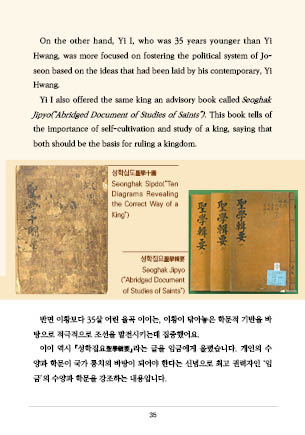 On the other hand, Yi I, who was 35 years younger than Yi
Hwang, was more focused on fostering the political system of Jo-
seon based on the ideas that had been laid by his contemporary, Yi
Hwang.
Yi I also offered the same king an advisory book called Seoghak
Jipyo("Abridged Document of Studies of Saints"). This book tells of
the importance of self-cultivation and study of a king, saying that
both should be the basis for ruling a kingdom.
성학십도聖學十圖
Seonghak Sipdo("Ten
Diagrams Revealing
the Correct Way of a
King")
성학집요聖學輯要
Seoghak Jipyo
("Abridged Document
of Studies of Saints")
聖學十圖
聖學輯要
聖學輯要
반면 이황보다 35살 어린 율곡 이이는, 이황이 닦아놓은 학문적 기반을 바
탕으로 적극적으로 조선을 발전시키는데 집중했어요.
이이 역시 『성학집요聖學輯要』라는 글을 임금에게 올렸습니다. 개인의 수
양과 학문이 국가 통치의 바탕이 되어야 한다는 신념으로 최고 권력자인 '임
금'의 수양과 학문을 강조하는 내용입니다.
35